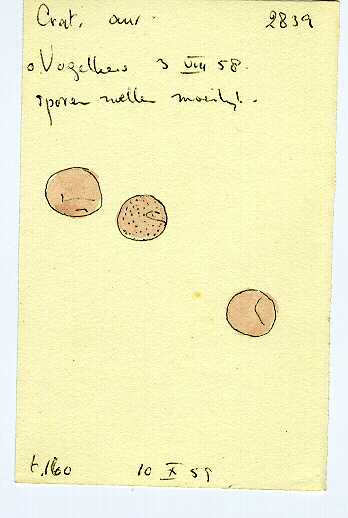 Crat. aur. 2839
o. Vogelkers 3 VIII 58.
sporen zwellen moeilijk.
t.160 10 X 59